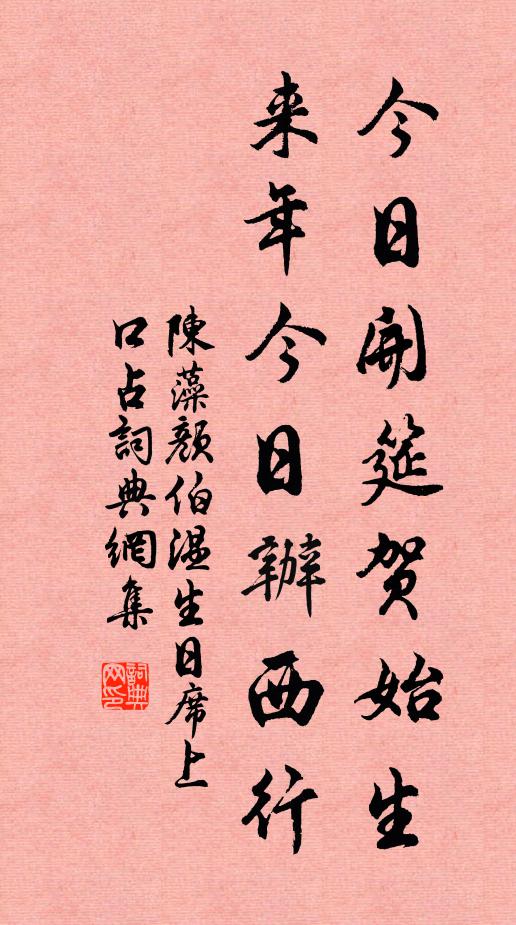 今日開筵贺始生
来年今日辦西行
陳藻顏伯湿生日席上
口占詞典網集
詞典
网印